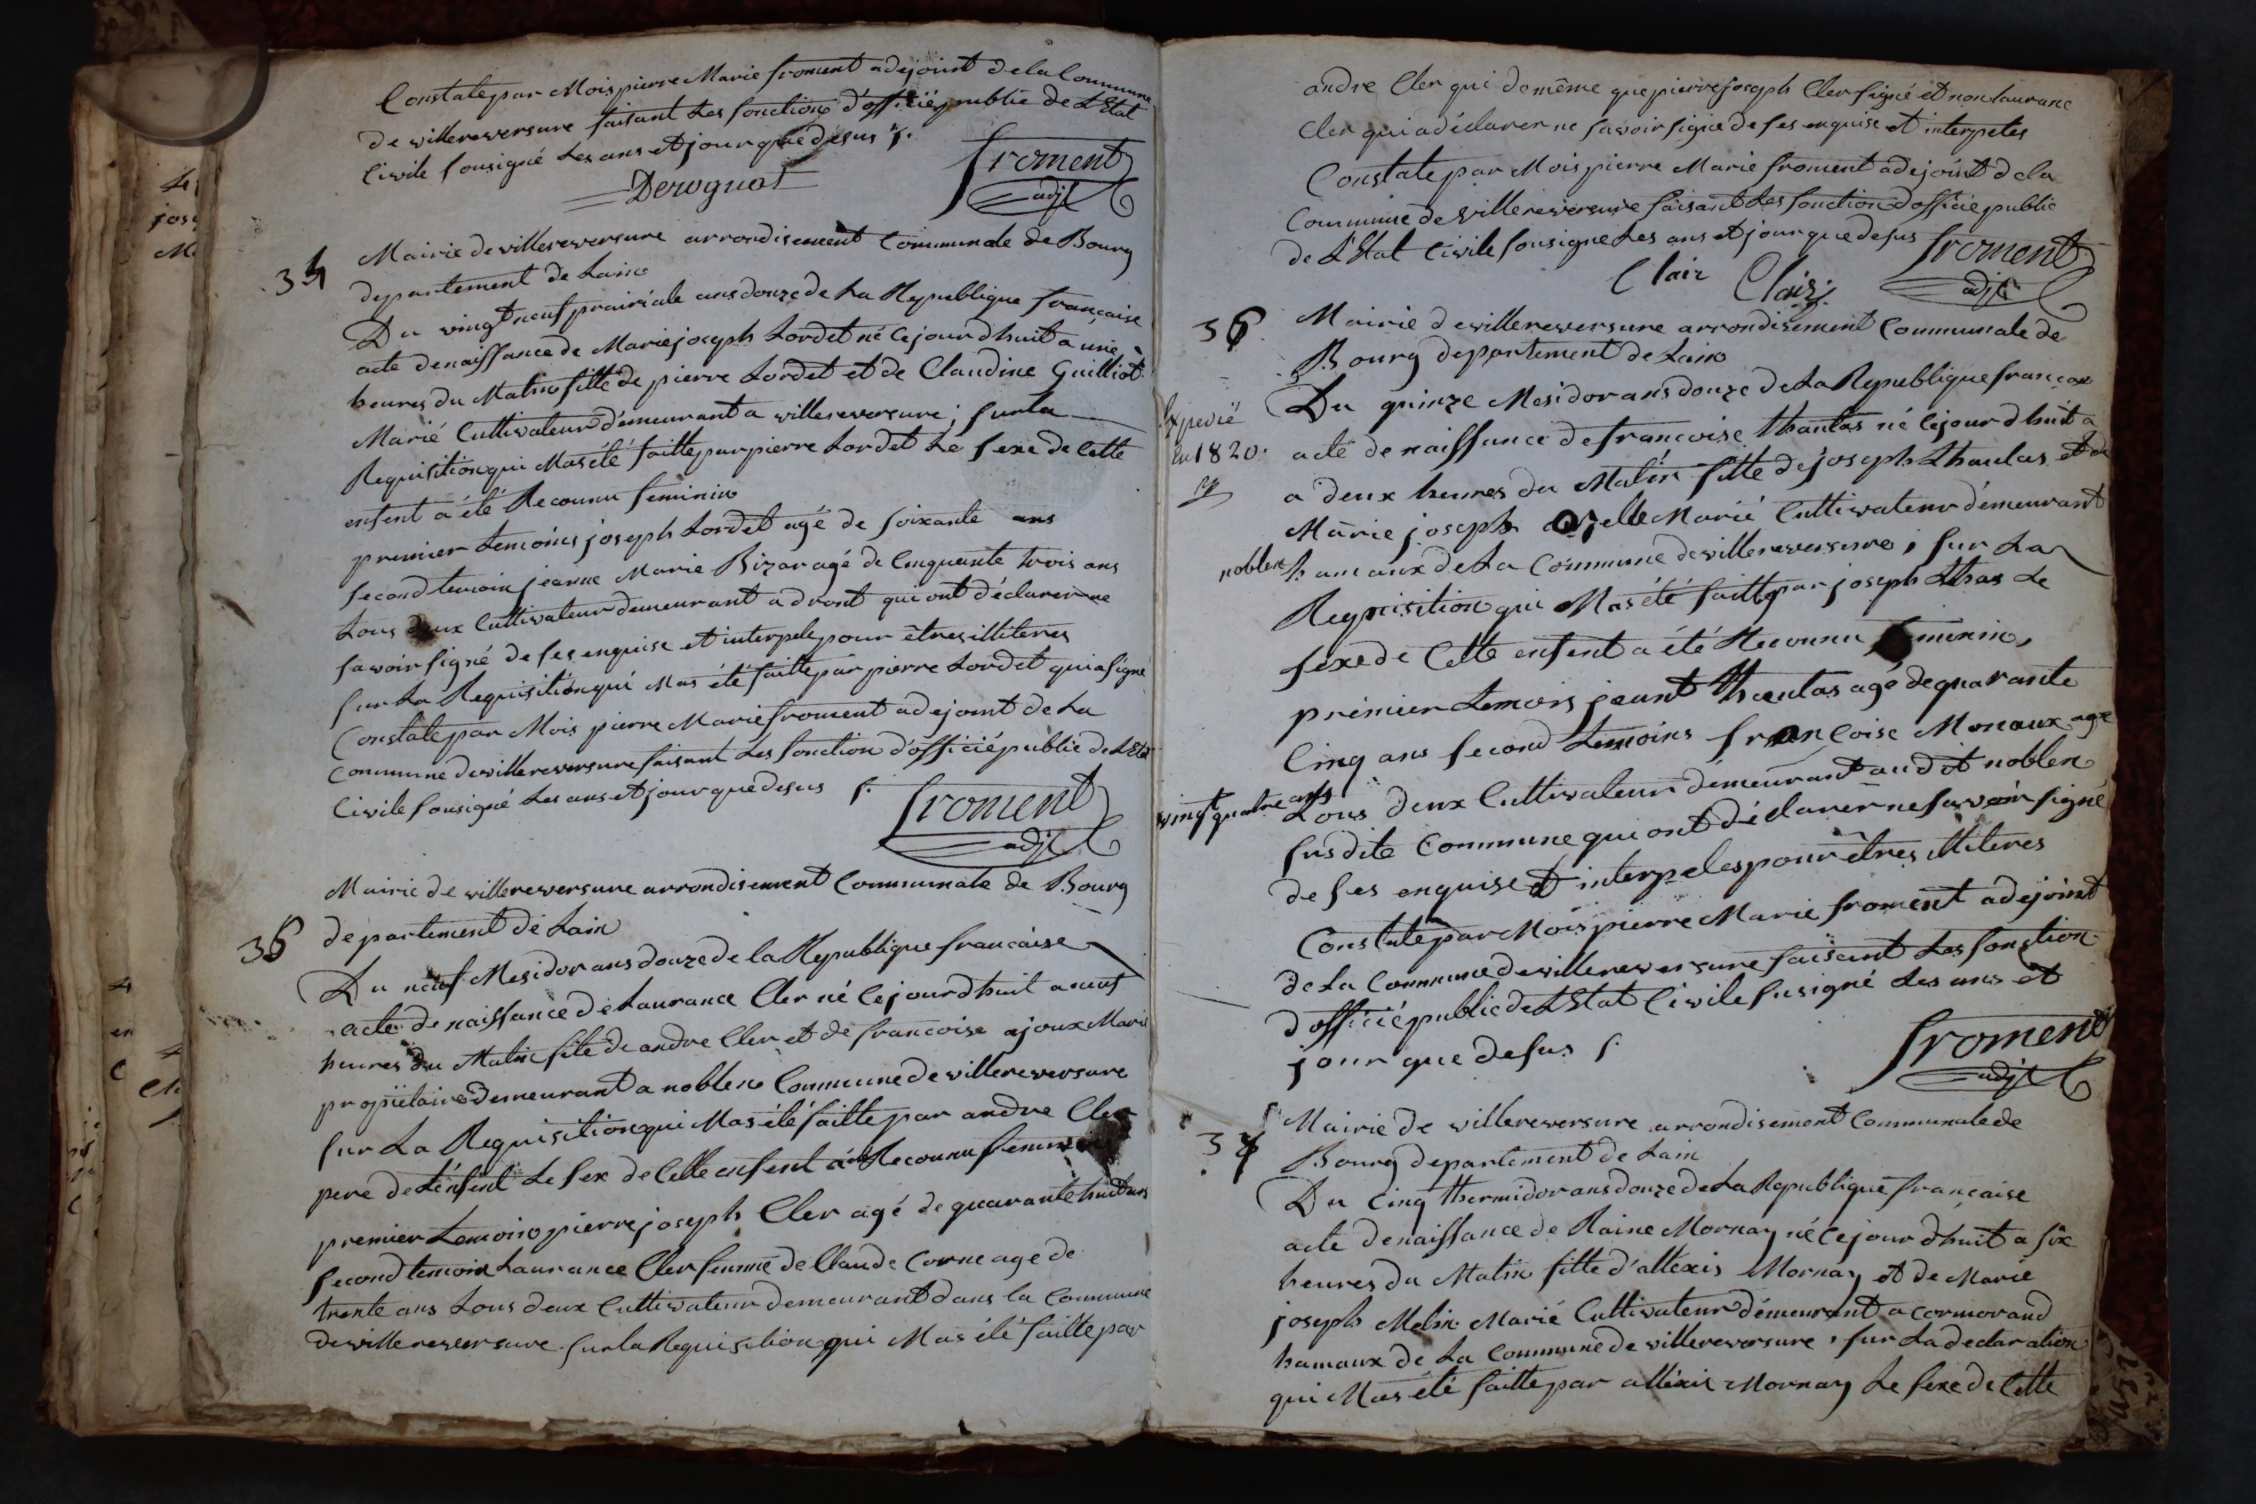 Constate par Mois pierre Marie froment adejoint de la Commune
de villereversure faisant Les fonctions d'officié public de L'Etat
Civile sousigné Les ans et jour que desus /.
Derognat
froment
adjt
34
Mairie de villereversure arrondisement Communale de Bourg
departement de Lain
Du vingt neuf prairiale ans douze de La Republique française
acte de naissance de Marie joseph Lordet né cejourdhuit a une
heures du Matin fille de pierre Lordet et de Claudine Guilliot
Marié Cultivateur démeurant a villereversure ; sur La
Requisition qui Mas été faitte par pierre Lordet Le sexe de Cette
enfent a été Reconnu feminin
premier temoins joseph Lordet agé de soixante ans
second temoin jeanne Marie Bizar agé de Cinquante trois ans
tous deux Cultivateur demeurant a dront qui ont déclarer ne
savoir signé de ses enquise et interpele pour êtres illiteres
sur La Requisition qui Mas été faitte par pierre Lordet qui a signé
Constate par Mois pierre Marie froment adejoint de La
Commune de villereversure faisant Les fonction d'officié public de L'Etat
Civile sousigné Les ans et jour que desus /.
froment
adjt
35
Mairie de villereversure arrondisement Communale de Bourg
departement de Lain
Du neuf Mesidor ans douze de la Republique francaise
acte de naissance de Laurance Cler né Cejourdhuit a neuf
heures du Matin fille de andre Cler et de francoise ajoux Marié
propiétaire demeurant a noblen Commune de villereversure
sur La Requisition qui Mas été faitte par andre Cler
pere de Lénfent Le sex de Cette enfent a été Reconnu feminin
premier temoin pierre joseph Cler agé de quarante huit ans
second temoin Laurance Cler femme de Claude Corne age de
trente ans tous deux Cultivateur demeurant dans la Commune
de villereversure sur la Requisition qui Mas été faitte par
andre Cler qui de même que pierre joseph Cler signé et non laurance
Cler qui a déclarer ne savoir signé de ses enquise et interpeles
Constate par Mois pierre Marie froment adejoint de la
Commune de villereversure faisant Les fonction d'officié public
de L'Etat Civile sousigne Les ans et jour que desus
froment
adjt
Clair Clair
36
Mairie de villereversure arrondisement Communale de
Bourg departement de Lain
Expedié
en 1820.
Du quinze Mesidor ans douze de La Republique françoise
acte de naissance de françoise thaulas né Cejourdhuit a
a deux heures du Matin fille de joseph thaulas et de
Marie joseph Marié Cultivateur démeurant
noblen hamaux de La Commune de villereversure, sur La
Requisition qui Mas été faitte par joseph Le
sexe de Cette enfent a été Reconnu feminin,
premier temois jeant thaulas agé de quarante
Cinq ans second temoins francoise Monaux age
vingt quatre ans
tous deux Cultivateur démeurant audit noblen
susdite Commune qui ont déclarer ne savoir signé
de ses enquise et interpeles pour êtres illiteres
Constate par Mois pierre Marie froment adejoint
de La Commune de villereversure faisant Les fonction
d'officié public de L'Etat Civile susigné Les ans et
jour que desus /.
froment
adjt
37
Mairie de villereversure arrondisement Communale de
Bourg departement de Lain
Du Cinq thermidor ans douze de La Republique française
acte de naissance de Raine Mornay né Cejourdhuit a six
heures du Matin fille d'allexis Mornay et de Marie
joseph Melin Marié Cultivateur démeurant a Cormorand
hamaux de La Commune de villereversure, sur La declaration
qui Mas été faitte par allexis Mornay Le sexe de Cette